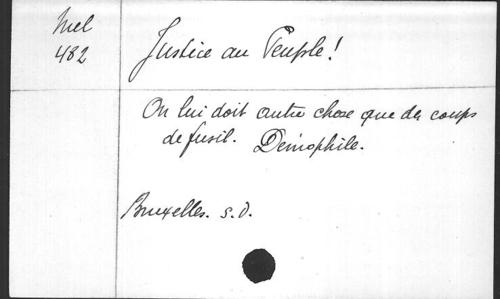 Mel
482
Justice au Peuple!
On lui doit autre chose que des coups
de fusil. Démophile.
Bruxelles. s.d.